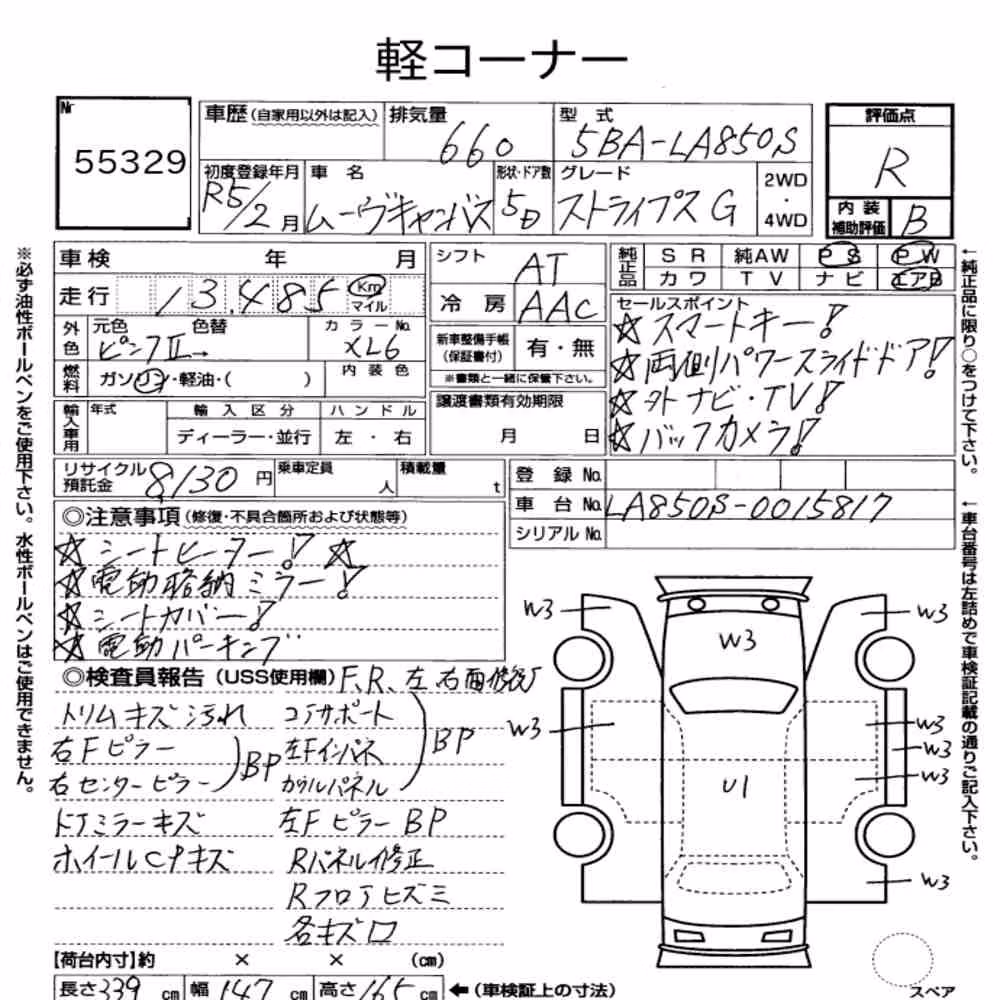 軽コーナー
Nr
55329
車歴(自家用以外は記入)
排気量
660
型 式
5BA-LA850S
評価点
R
初度登録年月
R5/2月
車 名
ムーヴキャンバス
形状・ドア数
5D
グレード
ストライプスG
2WD
・
4WD
内装
補助評価
B
車検 年 月
走行 13,485 Km
マイル
シフト
AT
冷房
AAC
純正品
SR 純AW PS PW
カワ TV ナビ エアB
外色
元色 色替
ピンクII→
カラーNo.
XL6
燃料
ガソリン・軽油・( )
内装色
新車整備手帳
(保証書付)
有・無
※書類と一緒に保管下さい。
セールスポイント
☆スマートキー!
☆両側パワースライドドア!
☆外ナビ・TV!
☆バックカメラ!
輸入車用
年式
輸入区分
ハンドル
ディーラー・並行
左・右
譲渡書類有効期限
月 日
リサイクル
預託金
8130円
乗車定員
人
積載量
t
登録No.
車台No. LA850S-0015817
シリアルNo.
◎注意事項(修復・不具合箇所および状態等)
☆シートヒーター!☆
☆電動格納ミラー!
☆シートカバー!
☆電動パーキング
◎検査員報告(USS使用欄)F、R、左右面修復
トリムキズ汚れ
コアサポート
右Fピラー
左Fインパネ
BP
右センターピラー
BP
カウルパネル
ドアミラーキズ
左FピラーBP
ホイールCナキズ
Rパネル修正
Rフロアヒズミ
各キズ口
W3
W3
W3
W3
W3
W3
W3
U1
W3
スペア
【荷台内寸】約 × × (cm)
長さ339cm 幅147cm 高さ165cm ←(車検証上の寸法)
※必ず油性ボールペンをご使用下さい。水性ボールペンはご使用できません。
←純正品に限り○をつけて下さい。
←車台番号は左詰めで車検証記載の通りご記入下さい。